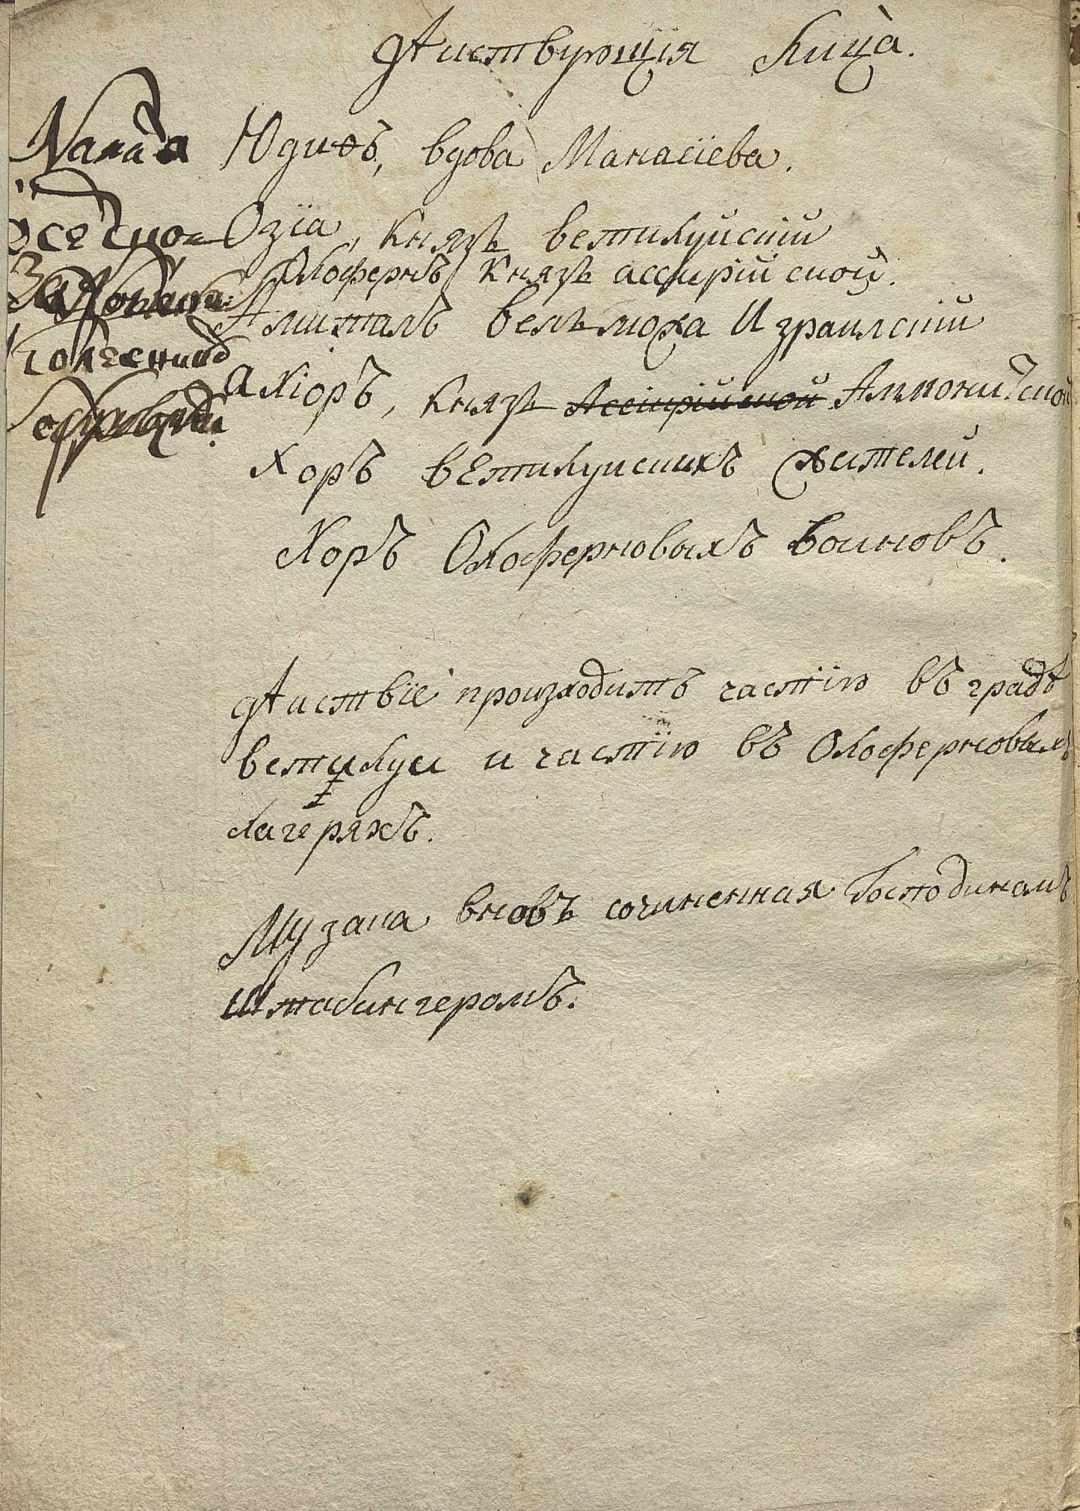 Дѣиствующїя Лица.
Юдиѳь, вдова Манасїева.
Озїа, Князь ветилуйскїй
Олофернъ Князь ассирїйской.
Амиталь велможа Израилскїй
Ахїоръ, Князь Ассирїйской Аммонитской
Хоръ ветилуискихъ жителей.
Хоръ Олоферновыхъ воиновъ.
Дѣиствїе произходитъ частїю въ градѣ
ветилуи и частїю въ Олоферновыхъ
лагеряхъ.
Музыка вновь сочиненная Господиномъ
Штабингеромъ.